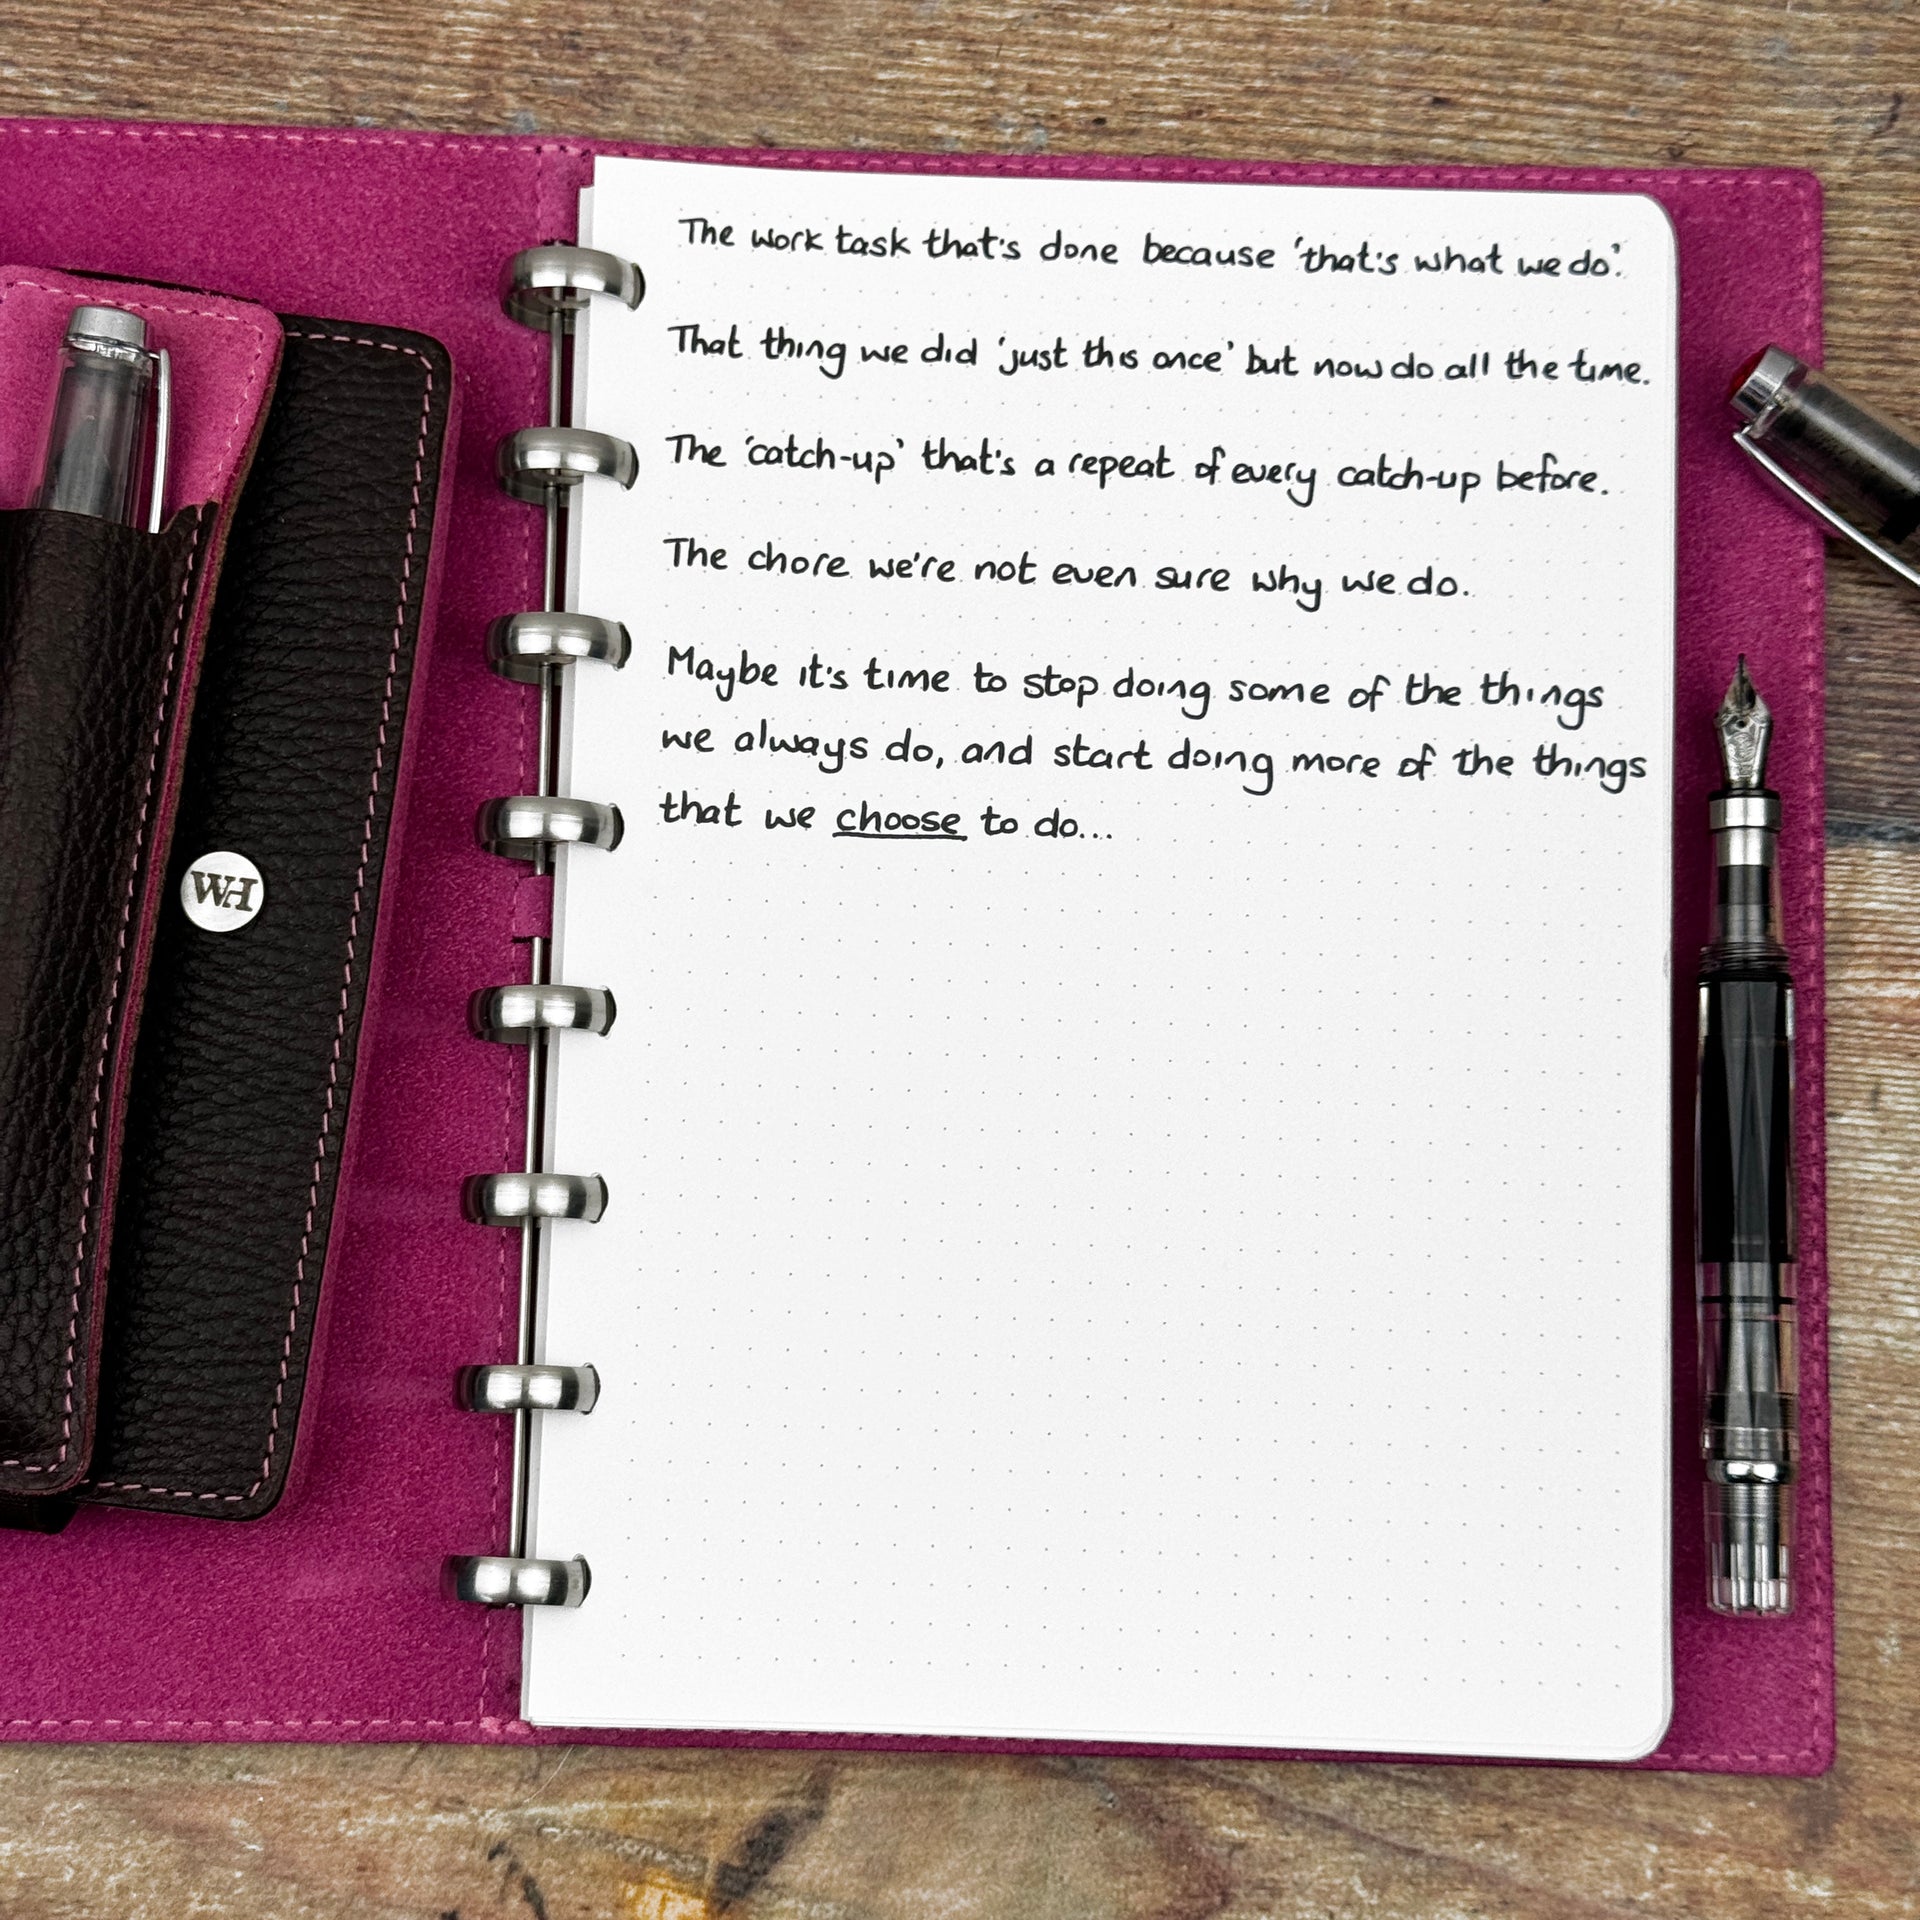 The work task that's done because 'that's what we do'.
That thing we did 'just this once' but now do all the time.
The 'catch-up' that's a repeat of every catch-up before.
The chore we're not even sure why we do.
Maybe it's time to stop doing some of the things
we always do, and start doing more of the things
that we choose to do...
WH